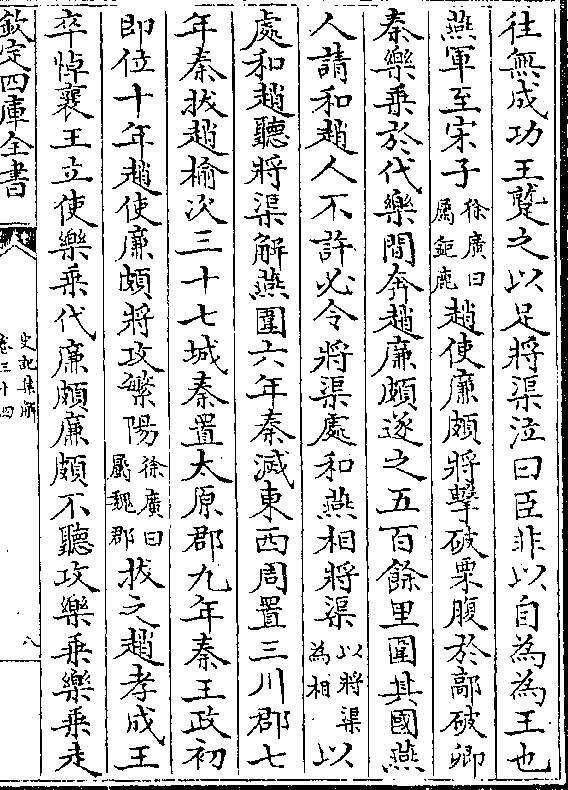 往無成功王蹵之以足將渠泣曰臣非以自為為王也
燕軍至宋子徐廣曰屬鉅鹿趙使廉頗將擊破栗腹於鄗破卿
秦樂乗於代樂間奔趙廉頗逐之五百餘里圍其國燕
人請和趙人不許必令將渠處和燕相將渠以將渠為相以
處和趙聽將渠解燕圍六年秦滅東西周置三川郡七
年秦拔趙榆次三十七城秦置太原郡九年秦王政初
即位十年趙使廉頗將攻繁陽徐廣曰屬魏郡拔之趙孝成王
卒悼襄王立使樂乗代廉頗廉頗不聽攻樂乗樂乗走
欽定四庫全書
史記集解
卷三十四
八